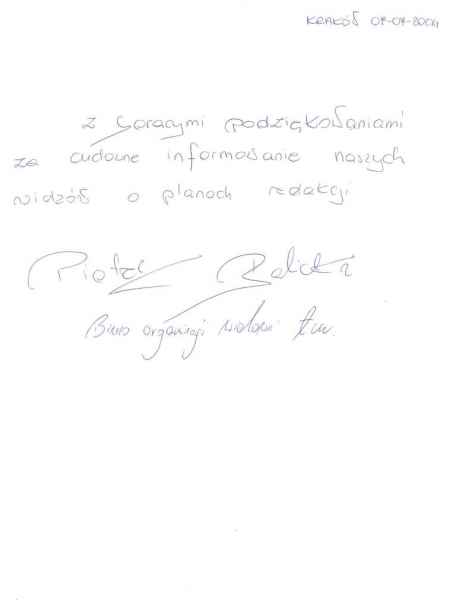 KRAKÓW 07-07-2004
z gorącymi podziękowaniami
za cudowne informowanie naszych
widzów o planach redakcji
Piotr
Biuro organizacji widowni